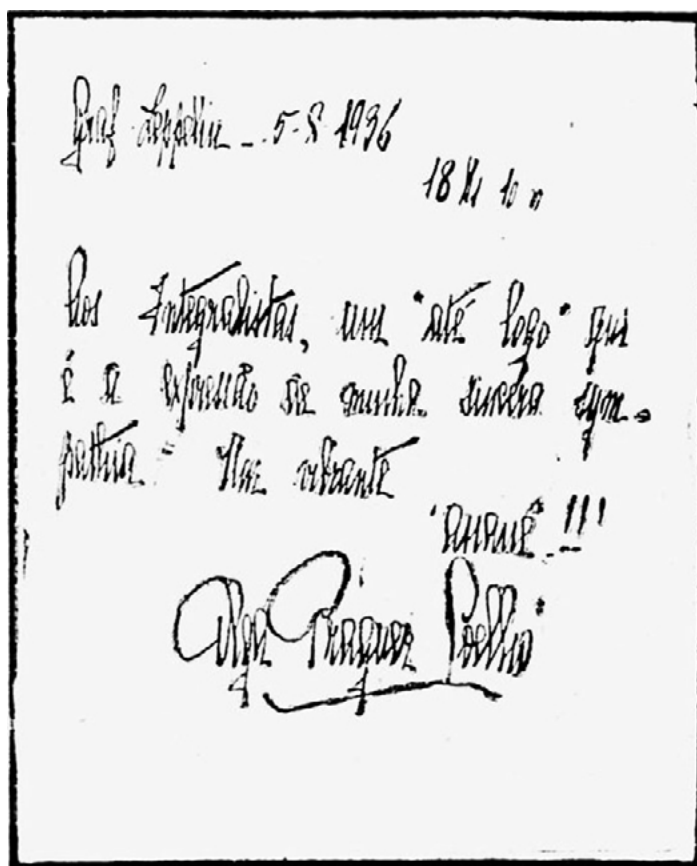 Graf Zeppelin - 5-8-1936
18 hs 10 m
Aos Integralistas, um "até logo" que
é a expressão da minha sincera sym-
pathia. Um vibrante
"anauê"!!!
Olga Praguer Coelho